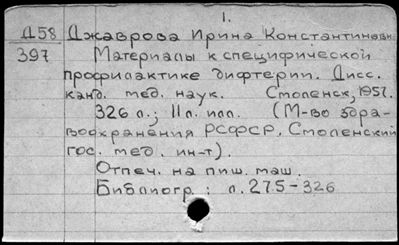 1.
Д58 Джаврова Ирина Константиновна
397 Материалы к специфической
профилактике дифтерии. Дисс.
канд. мед. наук. Смоленск, 1957.
326 л.; 11 л. илл. (М-во здра-
воохранения РСФСР. Смоленский
гос. мед. ин-т).
Отпеч. на пиш. маш.
Библиогр.: л. 275-326